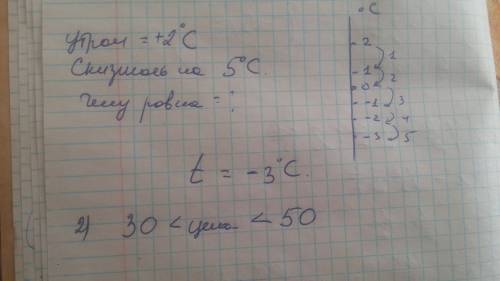 °C
Утром = +2°C
Снизилась на 5°C.
Чему равна = ?
2
1
1
2
0
-1
3
-2
4
-3
5
t = -3°C.
2) 30 < цена < 50